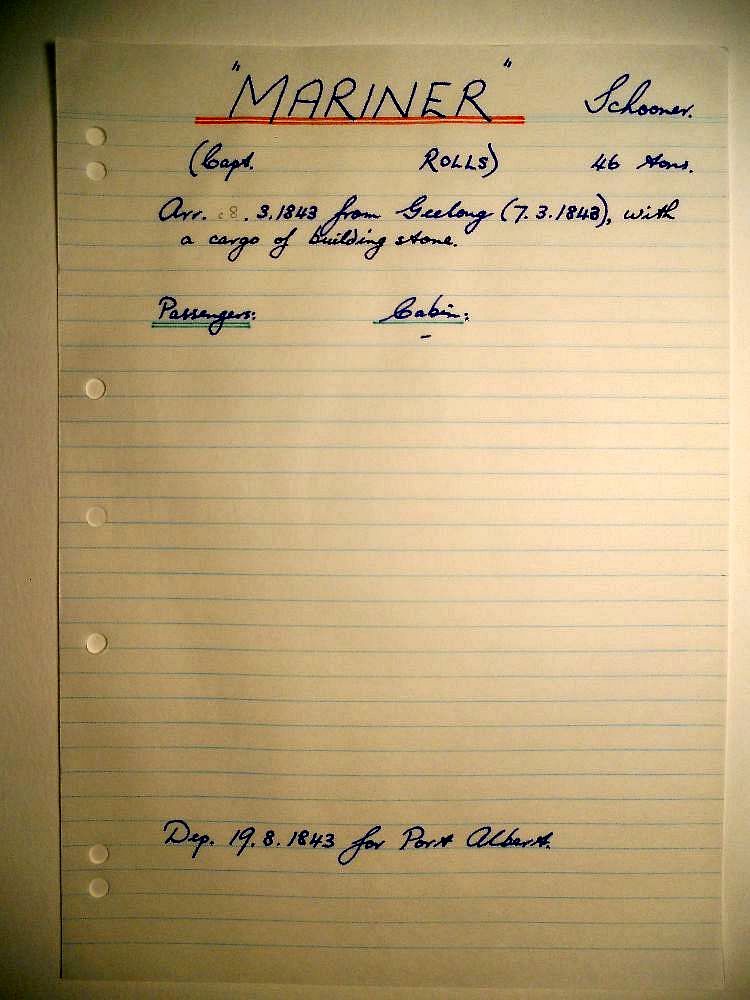 "MARINER" Schooner.
(Capt. ROLLS) 46 tons.
Arr. 8.3.1843 from Geelong (7.3.1843), with
a cargo of building stone.
Passengers: Cabin:
-
Dep. 19.8.1843 for Port Albert.